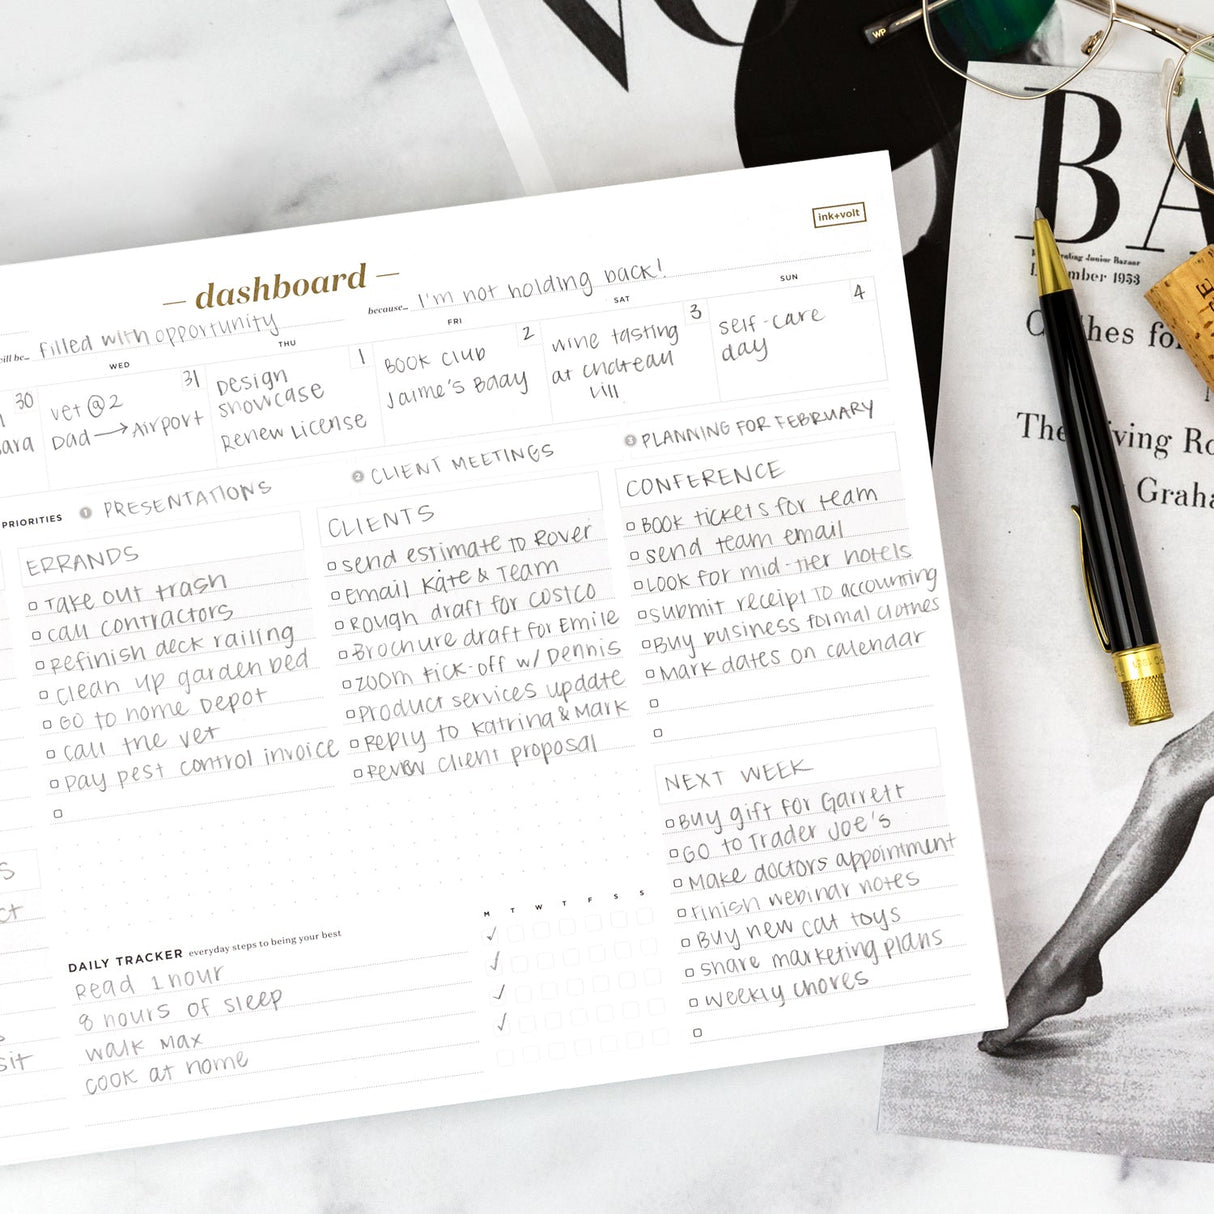 ink+volt
— dashboard —
will be... filled with opportunity
because... I'm not holding back!
WED
THU
FRI
SAT
SUN
30
31
vet @ 2
Dad → Airport
1
Design
showcase
Renew License
2
Book club
Jaime's Bday
3
wine tasting
at chateau
vill
4
self-care
day
PRIORITIES
1 PRESENTATIONS
2 CLIENT MEETINGS
3 PLANNING FOR FEBRUARY
ERRANDS
Take out trash
call contractors
Refinish deck railing
clean up garden bed
Go to home Depot
call the vet
pay pest control invoice
CLIENTS
send estimate to Rover
Email Kate & Team
Rough draft for costco
Brochure draft for Emile
zoom kick-off w/ Dennis
Product services update
Reply to Katrina & Mark
Review client proposal
CONFERENCE
Book tickets for team
send team email
Look for mid-tier hotels
submit receipt to accounting
Buy business formal clothes
Mark dates on calendar
NEXT WEEK
Buy gift for Garrett
Go to Trader Joe's
Make doctors appointment
Finish webinar notes
Buy new cat toys
share marketing plans
weekly chores
DAILY TRACKER everyday steps to being your best
M T W T F S S
Read 1 hour
8 hours of sleep
walk Max
cook at home
WP
BA
Junior Bazaar
1953